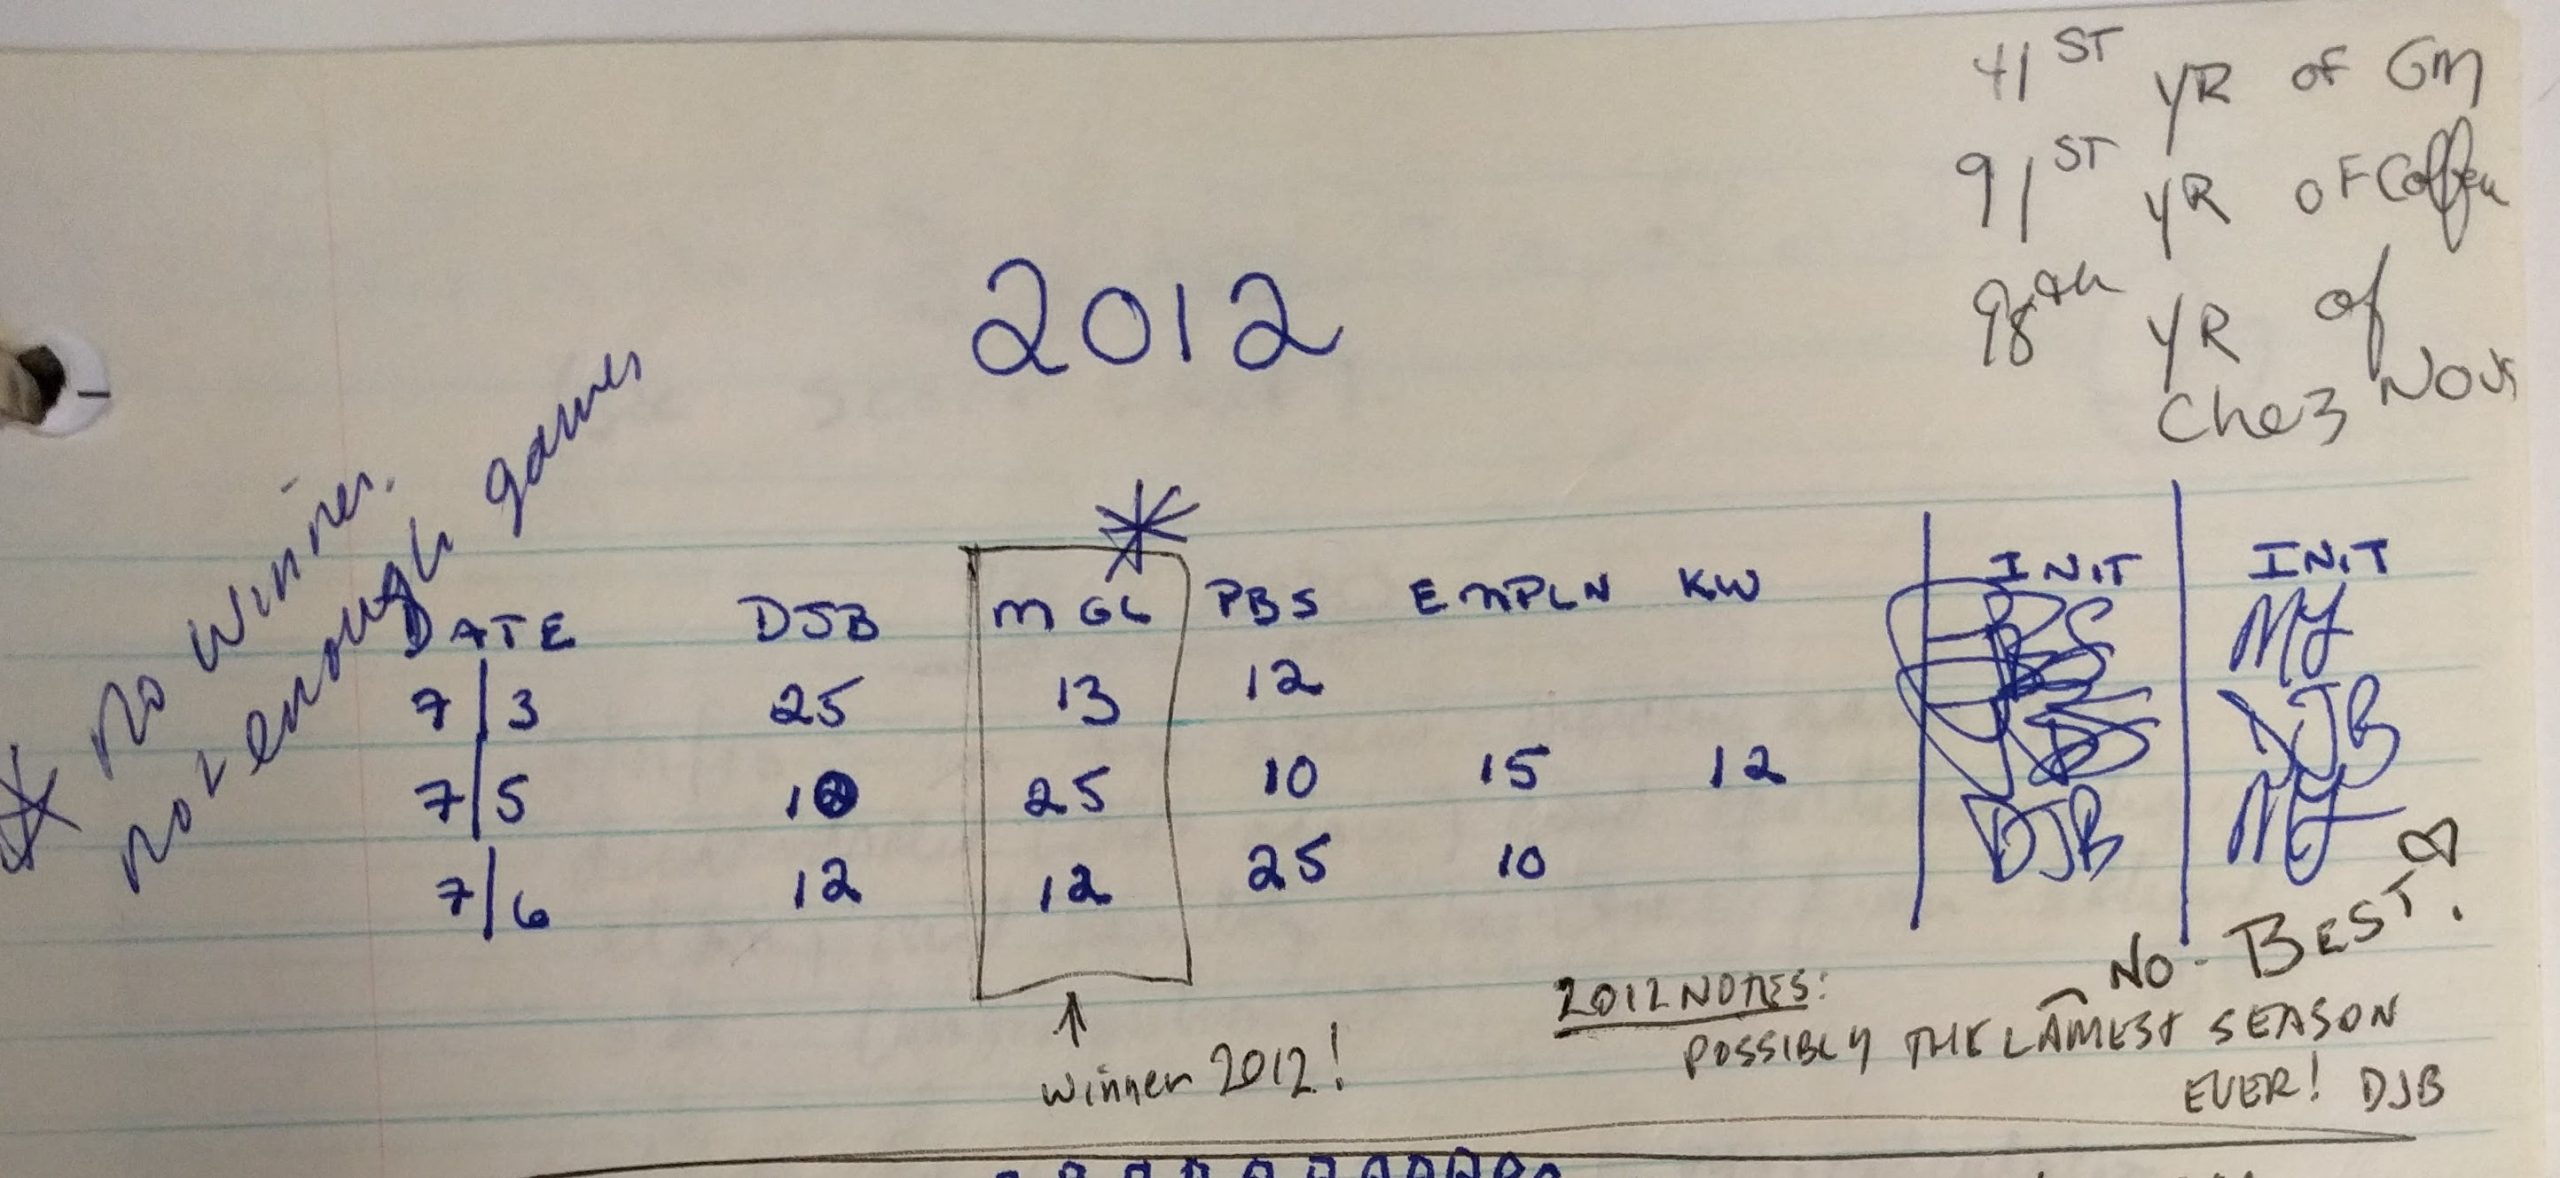 41ST YR OF GM
91ST YR OF Coffee
98th YR of
Chez Nous
2012
* no winner.
not enough games
*
DATE DJB MGL PBS EMPLN KW INIT INIT
7/3 25 13 12 PBS MJ
7/5 10 25 10 15 12 DJB
7/6 12 12 25 10 DJB MJ
NO - BEST!
2012 NOTES:
POSSIBLY THE LAMEST SEASON
EVER! DJB
↑
winner 2012!